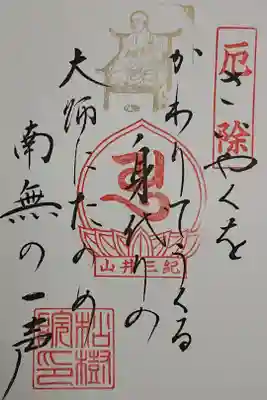 厄除
さいやくを
かわりてうくる
身代りの
大師にたのめ
南無の一声
紀三井山
松樹
院印